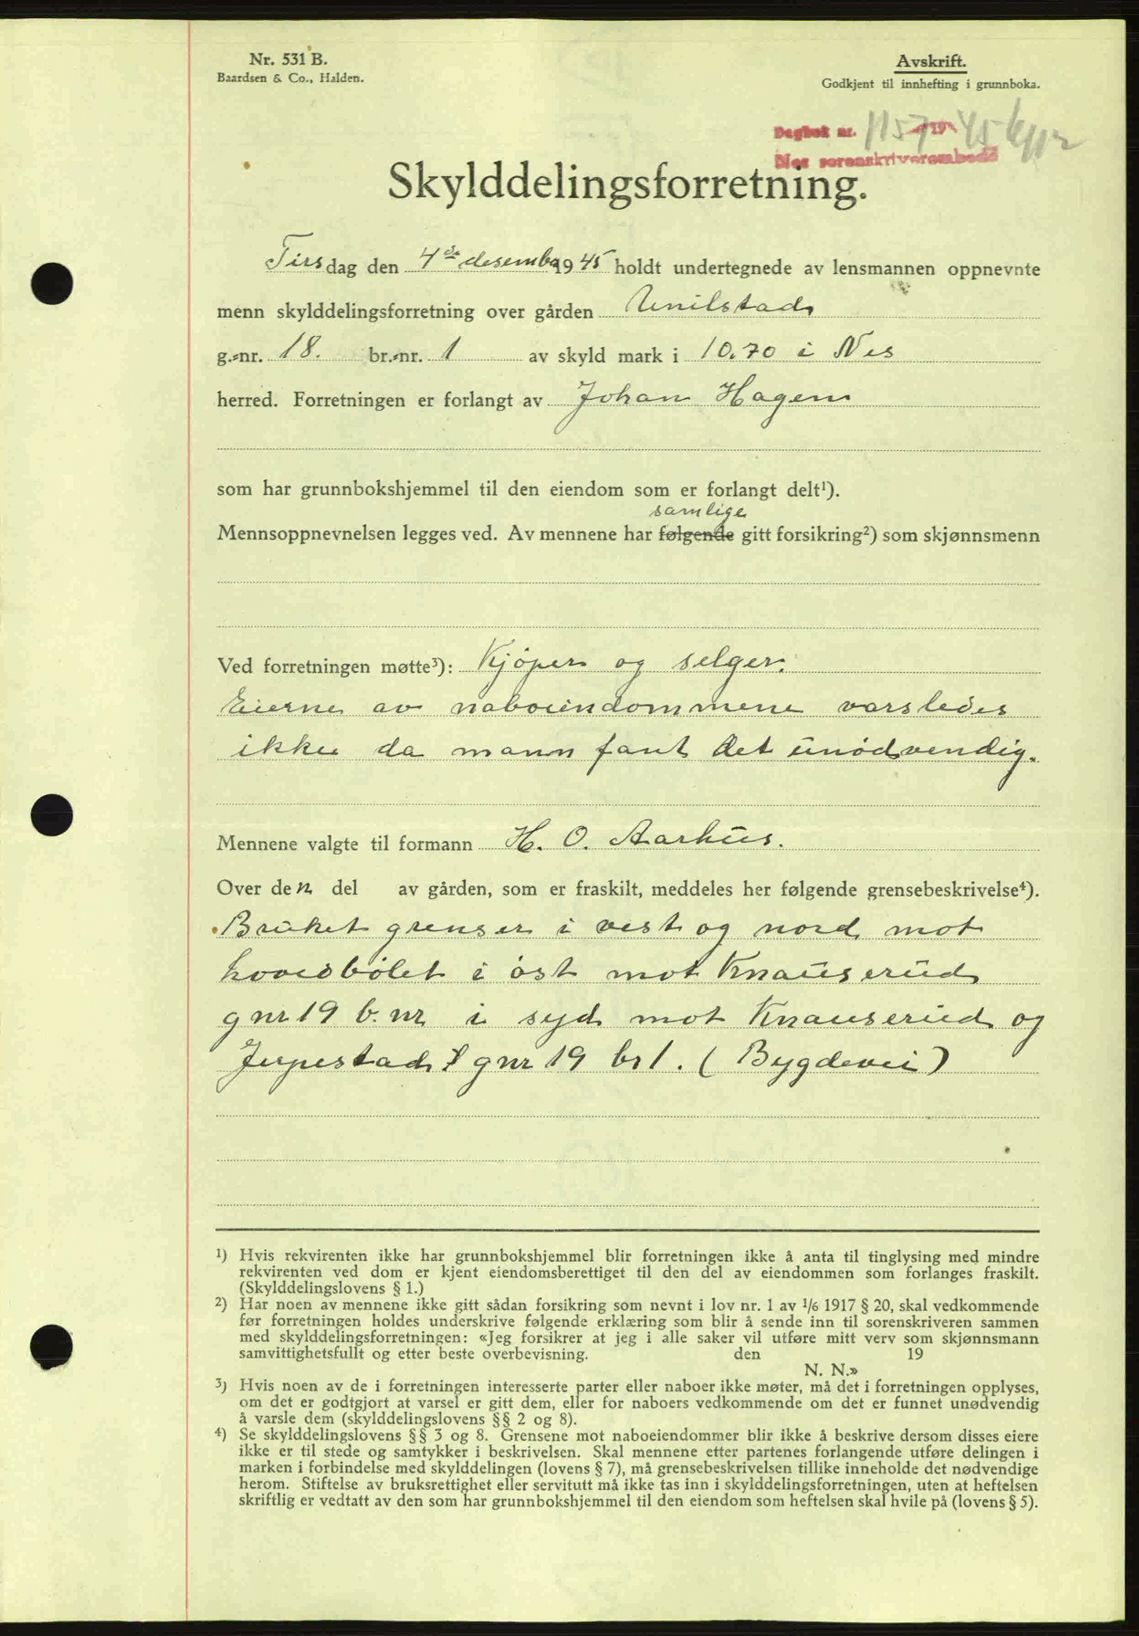 Nr. 531 B.
Baardsen & Co., Halden.
Avskrift.
Godkjent til innhefting i grunnboka.
Dagbok nr. 1157 19 45
Nes sorenskriverembede
Skylddelingsforretning.
Tirsdag den 4de desember 1945 holdt undertegnede av lensmannen oppnevnte
menn skylddelingsforretning over gården
g.-nr. 18. br.-nr. 1 av skyld mark i 10.70 i Nes
herred. Forretningen er forlangt av Johan Hagen
som har grunnbokshjemmel til den eiendom som er forlangt delt¹).
samlige
Mennsoppnevnelsen legges ved. Av mennene har følgende gitt forsikring²) som skjønnsmenn
Ved forretningen møtte³): Kjøper og selger.
Eierne av naboeindommene varsledes
ikke da mann fant det unødvendig.
Mennene valgte til formann H. O. Aarhus.
Over den del av gården, som er fraskilt, meddeles her følgende grensebeskrivelse⁴).
Bruket grenser i vest og nord mot
hovedbølet i øst mot Knauserud
gnr 19 b.nr i syd mot Knauserud og
Jerpestad gnr 19 br 1. (Bygdevei)
¹) Hvis rekvirenten ikke har grunnbokshjemmel blir forretningen ikke å anta til tinglysing med mindre
rekvirenten ved dom er kjent eiendomsberettiget til den del av eiendommen som forlanges fraskilt.
(Skylddelingslovens § 1.)
²) Har noen av mennene ikke gitt sådan forsikring som nevnt i lov nr. 1 av 1/6 1917 § 20, skal vedkommende
før forretningen holdes underskrive følgende erklæring som blir å sende inn til sorenskriveren sammen
med skylddelingsforretningen: «Jeg forsikrer at jeg i alle saker vil utføre mitt verv som skjønnsmann
samvittighetsfullt og etter beste overbevisning. den 19
N. N.»
³) Hvis noen av de i forretningen interesserte parter eller naboer ikke møter, må det i forretningen opplyses,
om det er godtgjort at varsel er gitt dem, eller for naboers vedkommende om det er funnet unødvendig
å varsle dem (skylddelingslovens §§ 2 og 8).
⁴) Se skylddelingslovens §§ 3 og 8. Grensene mot naboeiendommer blir ikke å beskrive dersom disses eiere
ikke er til stede og samtykker i beskrivelsen. Skal mennene etter partenes forlangende utføre delingen i
marken i forbindelse med skylddelingen (lovens § 7), må grensebeskrivelsen tillike inneholde det nødvendige
herom. Stiftelse av bruksrettighet eller servitutt må ikke tas inn i skylddelingsforretningen, uten at heftelsen
skriftlig er vedtatt av den som har grunnbokshjemmel til den eiendom som heftelsen skal hvile på (lovens § 5).